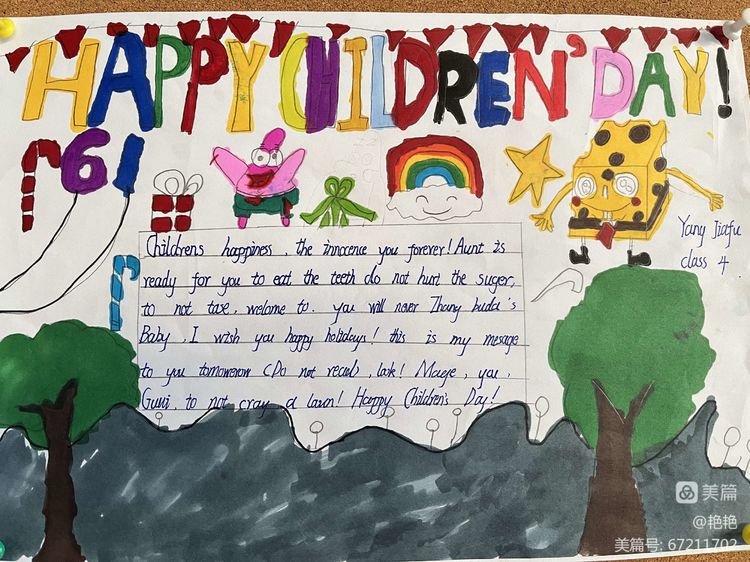 HAPPY CHILDREN'S DAY!
61
Yang Jiafu
class 4
Childrens happiness, the innocence you forever! Aunt is
ready for you to eat the teeth do not hurt the suger,
to not taxe, welcome to. you will never Zhang budd's
Baby, I wish you happy holidays! this is my message
to you tomowerow (Do not recud), look! Maeje, you,
Guwi, to not cray a lown! Happy Children's Day!
美篇
@艳艳
美篇号: 67211702